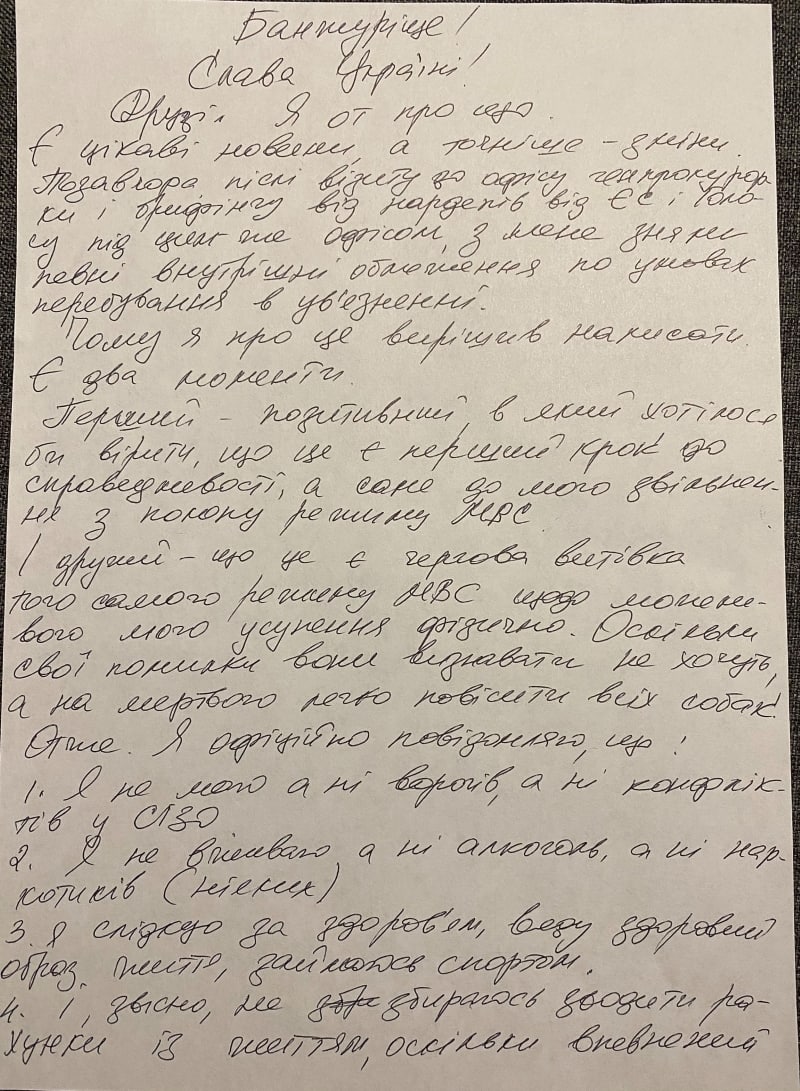 Банжуріще!
Слава Україні!
Друзі. Я от про що.
Є цікаві новини, а точніше – зміни.
Позавчора після візиту до офісу генпрокурор-
ки і брифінгу від нардепів від ЄС і Голо-
су під цим же офісом, з мене зняли
певні внутрішні обмеження по умовах
перебування в ув'язненні.
Чому я про це вирішив написати.
Є два моменти.
Перший – позитивний, в який хотілося
би вірити, що це є перший крок до
справедливості, а саме до мого звільнен-
ня з полону режиму МВС.
І другий – що це є чергова витівка
того самого режиму МВС щодо можли-
вого мого усунення фізично. Оскільки
свої помилки вони визнавати не хочуть,
а на мертвого легко повісити всіх собак.
Отже. Я офіційно повідомляю, що:
1. Я не маю а ні ворогів, а ні конфлік-
тів у СІЗО
2. Я не вживаю а ні алкоголь, а ні нар-
котиків (ніяких)
3. Я слідкую за здоров'ям, веду здоровий
образ життя, займаюсь спортом.
4. І, звісно, не збираюсь зводити ра-
хунки із життям, оскільки впевнений